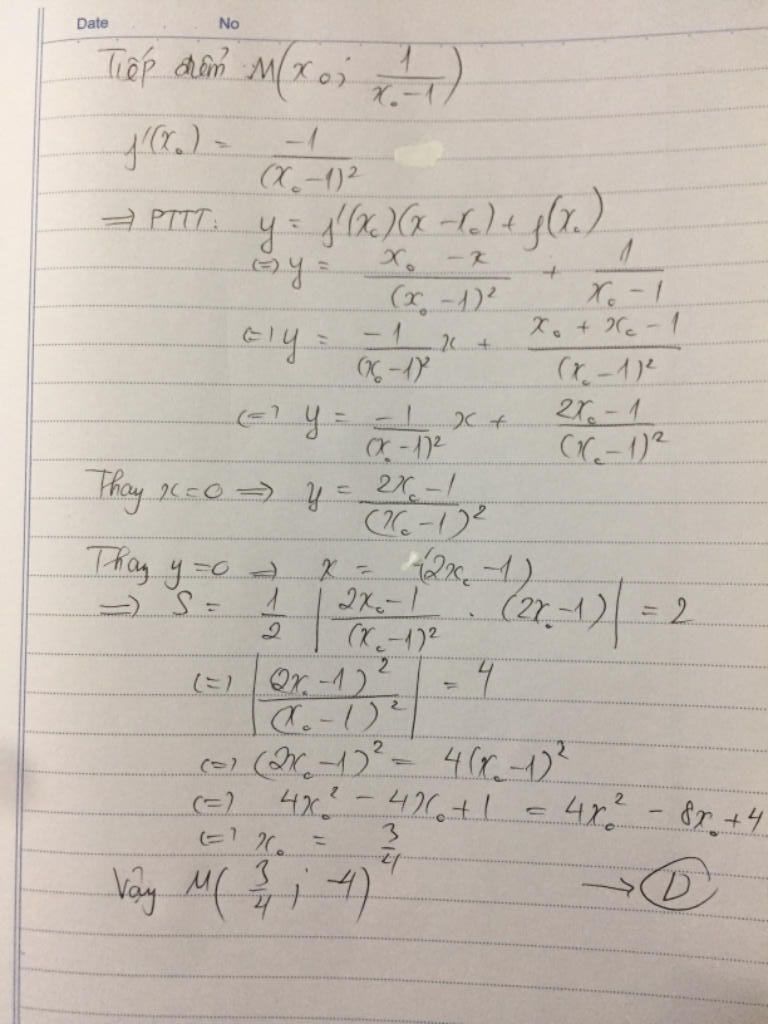 Date No
Tiếp điểm M(x₀; 1/(x₀-1))
f'(x₀) = -1/(x₀-1)²
=> PTTT: y = f'(x₀)(x-x₀) + f(x₀)
(=) y = (x₀ - x)/(x₀-1)² + 1/(x₀-1)
(=) y = -1/(x₀-1)² x + (x₀ + x₀ - 1)/(x₀-1)²
(=) y = -1/(x₀-1)² x + (2x₀-1)/(x₀-1)²
Thay x=0 => y = (2x₀-1)/(x₀-1)²
Thay y=0 => x = (2x₀-1)
=> S = 1/2 |(2x₀-1)/(x₀-1)² . (2x₀-1)| = 2
(=) |(2x₀-1)²/(x₀-1)²| = 4
(=) (2x₀-1)² = 4(x₀-1)²
(=) 4x₀² - 4x₀ + 1 = 4x₀² - 8x₀ + 4
(=) x₀ = 3/4
Vậy M(3/4; -4) → D